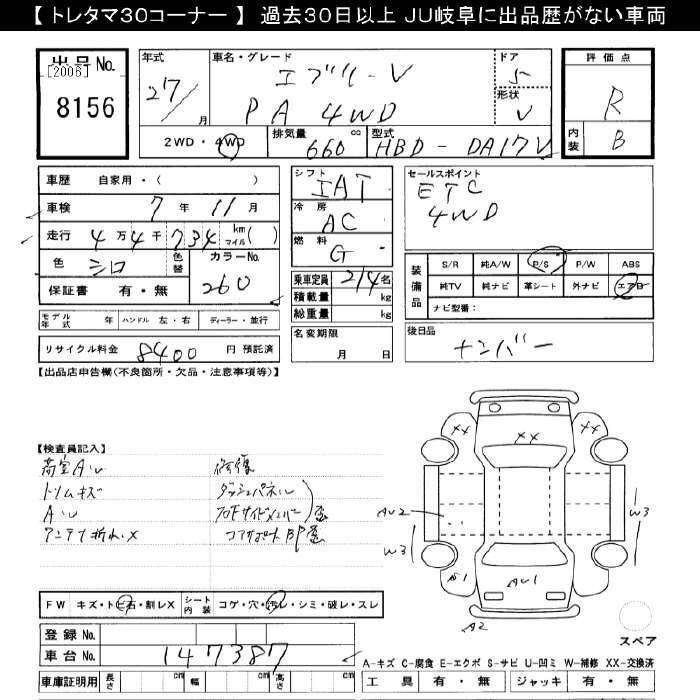 【 トレタマ30コーナー 】 過去30日以上 JU岐阜に出品歴がない車両
出品 No.
[2006]
8156
年式
27/
月
車名・グレード
エブリーV
PA 4WD
ドア
5
形状
V
2WD・4WD
排気量
660
cc
型式
HBD-DA17V
評価点
R
内装
B
車歴 自家用・( )
車検 7 年 11 月
走行 4 万 4 千 734 km マイル( )
色 シロ 色替
カラーNo.
260
保証書 有・無
モデル年式 年 ハンドル 左・右 ディーラー・並行
リサイクル料金 8400 円 預託済
シフト
IAT
冷房
AC
燃料
G
乗車定員 2/4 名
積載量 kg
総重量 kg
名変期限
月 日
セールスポイント
ETC
4WD
装備品
S/R 純A/W P/S P/W ABS
純TV 純ナビ 革シート 外ナビ エアB
ナビ型番:
後日品
ナンバー
【出品店申告欄(不良箇所・欠品・注意事項等)】
【検査員記入】
荷室A・U 修復
トリムキズ ダッシュパネル
A・U
アンテナ折れ・X
XX
XX
XX
AU2
W3
W3
A1
AU1
A1
A2
FW キズ・トビ石・割レX シート内装 コゲ・穴・汚レ・シミ・破レ・スレ
登録 No.
車台 No.
147387
車庫証明用 長さ cm 幅 cm 高さ cm
スペア
A-キズ C-腐食 E-エクボ S-サビ U-凹ミ W-補修 XX-交換済
工具 有・無 ジャッキ 有・無